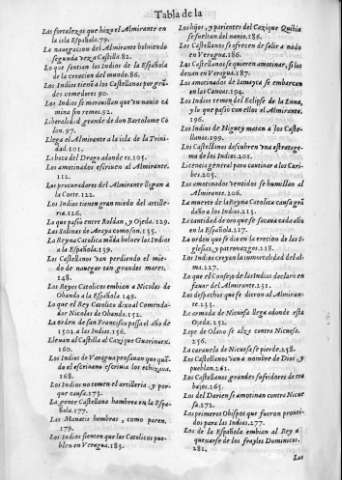 Tabla de la
Las fortalezas que hizo el Almirante en
la isla Española.79.
La nauegacion del Almirante boluiendo
segunda vez a Castilla.82.
Lo que sentian los Indios de la Española
de la creacion del mundo.86.
Los Indios tienē a los Castellanos por grā
des comedores.90.
Los Indios se marauillan que vn nauio ca
mina sin remos.92.
Liberalidad grande de don Bartolome Co
lon.97.
Llega el Almirante a la isla de la Trini-
dad.101.
La boca del Drago adonde es.105.
Los amotinados escriuen al Almirante.
112.
Los procuradores del Almirante llegan a
la Corte.122.
Los Indios tienen gran miedo del artille-
ria.126.
Lo que passò entre Roldan, y Ojeda.129.
Las Salinas de Araya como son.135.
La Reyna Catolica māda boluer los Indios
a la Española.139.
Los Castellanos van perdiendo el mie-
do de nauegar tan grandes mares.
148.
Los Reyes Catolicos embian a Nicolas de
Obando a la Española.149.
Lo que el Rey Catolico dixo al Comenda-
dor Nicolas de Obando.152.
La orden de san Francisco passa el año de
1502. a las Indias.156.
Lleuan a Castilla al Cazique Guarionex.
160.
Los Indios de Veragua pensauan que quā-
do el escriuano escriuia los echizaua.
168.
Los Indios no temen el artilleria, y por-
que causa.173.
La gente Castellana hambrea en la Espa-
ñola.177.
Los Manatis hembras, como paren.
179.
Los Indios sienten que los Catolicos pue-
blen en Veragua.183.
Los hijos, y parientes del Cazique Quibia
se sueltan del nauio.186.
Los Castellanos se ofrecen de salir a nado
en Veragua.186.
Los Castellanos se quieren amotinar, si los
dexan en Veragua.187.
Los amotinados de Iamayca se embarcan
en las Canoas.194.
Los Indios temen del Eclipse de la Luna,
y lo que passò con ellos el Almirante.
196.
Los Indios de Higuey matan a los Caste-
llanos.199.
Los Castellanos descubren vna estratage-
ma de los Indios.201.
Licencia general para cautiuar a los Cari-
bes.205.
Los amotinados vencidos se humillan al
Almirante.206.
La muerte de la Reyna Catolica causa grā
daño a los Indios.213.
La cantidad de oro que se sacaua cada año
en la Española.217.
La orden que se dio en la erecion de las I-
glesias, y patronazgos.218.
Los Indios creyan la inmortalidad del al-
ma.227.
Lo que el Consejo de las Indias declarò en
fauor del Almirante.231.
Los despachos que se dieron al Almiran-
te.233.
La armada de Nicuesa llega adonde està
Ojeda.251.
Lope de Olano se alça contra Nicuesa.
256.
La carauela de Nicuesa se pierde.258.
Los Castellanos van a nombre de Dios, y
pueblan.261.
Los Castellanos grandes sufridores de tra-
bajos.265.
Los del Darien se amotinan contra Nicue
sa.272.
Los primeros Obispos que fueron proueì-
dos para las Indias.277.
Los de la Española embian al Rey a
quexarse de los frayles Dominicos.
282.
Los